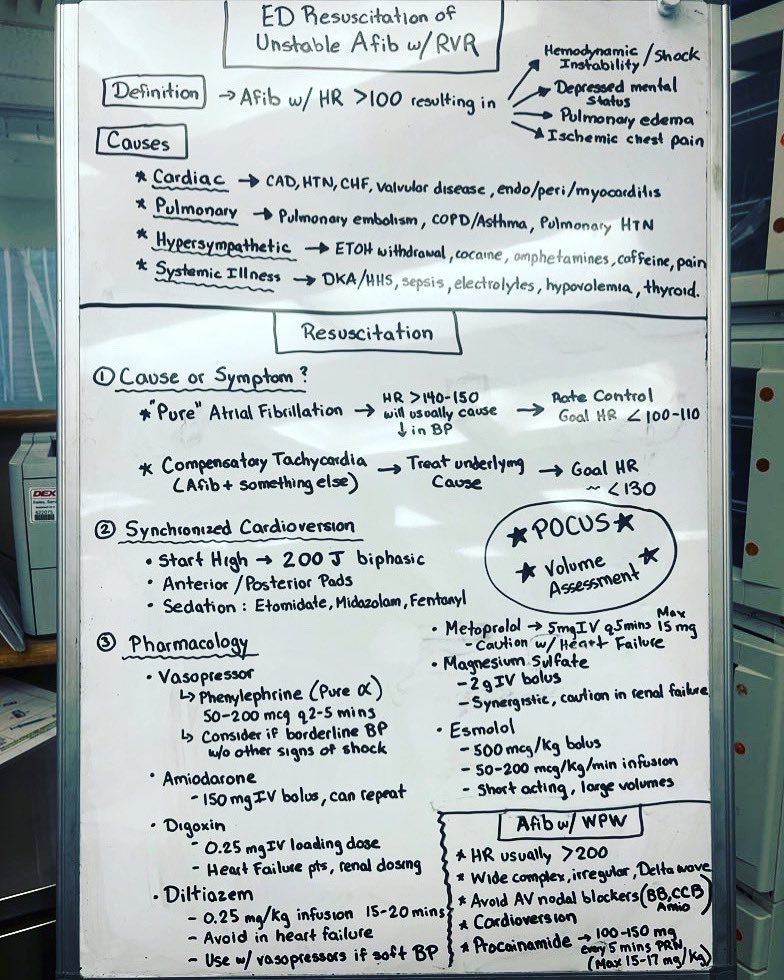 ED Resuscitation of
Unstable Afib w/ RVR
Definition → Afib w/ HR >100 resulting in
Hemodynamic / Shock
Instability
Depressed mental
status
Pulmonary edema
Ischemic chest pain
Causes
* Cardiac → CAD, HTN, CHF, valvular disease, endo/peri/myocarditis
* Pulmonary → Pulmonary embolism, COPD/Asthma, Pulmonary HTN
* Hypersympathetic → ETOH withdrawal, cocaine, amphetamines, caffeine, pain
* Systemic Illness → DKA/HHS, sepsis, electrolytes, hypovolemia, thyroid.
Resuscitation
① Cause or Symptom?
* "Pure" Atrial Fibrillation → HR >140-150
will usually cause
↓ in BP
→ Rate Control
Goal HR <100-110
* Compensatory Tachycardia
(Afib + something else)
→ Treat underlying
Cause
→ Goal HR
~ <130
② Synchronized Cardioversion
• Start High → 200 J biphasic
• Anterior/Posterior Pads
• Sedation: Etomidate, Midazolam, Fentanyl
★ POCUS ★
★ Volume ★
Assessment
③ Pharmacology
• Vasopressor
↳ Phenylephrine (Pure α)
50-200 mcg q2-5 mins
↳ Consider if borderline BP
w/o other signs of shock
• Amiodarone
- 150 mg IV bolus, can repeat
• Digoxin
- 0.25 mg IV loading dose
- Heart Failure pts, renal dosing
• Diltiazem
- 0.25 mg/kg infusion 15-20 mins
- Avoid in heart failure
- Use w/ vasopressors if soft BP
• Metoprolol → 5mg IV q5mins Max 15 mg
- Caution w/ Heart Failure
• Magnesium Sulfate
- 2g IV bolus
- Synergistic, caution in renal failure
• Esmolol
- 500 mcg/kg bolus
- 50-200 mcg/kg/min infusion
- Short acting, large volumes
Afib w/ WPW
* HR usually >200
* Wide complex, irregular, Delta wave
* Avoid AV nodal blockers (BB, CCB)
Amio
* Cardioversion
* Procainamide → 100-150 mg
every 5 mins PRN
(Max 15-17 mg/kg)
DEX